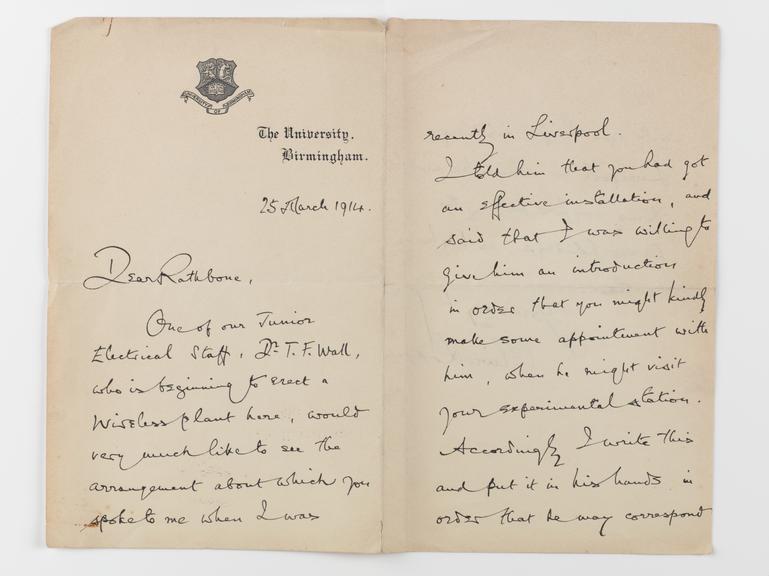 UNIVERSITY OF BIRMINGHAM
The University.
Birmingham.
25 March 1914.
Dear Rathbone,
One of our Junior
Electrical Staff, Dr. T. F. Wall,
who is beginning to erect a
Wireless plant here, would
very much like to see the
arrangement about which you
spoke to me when I was
recently in Liverpool.
I told him that you had got
an effective installation, and
said that I was willing to
give him an introduction
in order that you might kindly
make some appointment with
him, when he might visit
your experimental station.
Accordingly I write this
and put it in his hands in
order that he may correspond